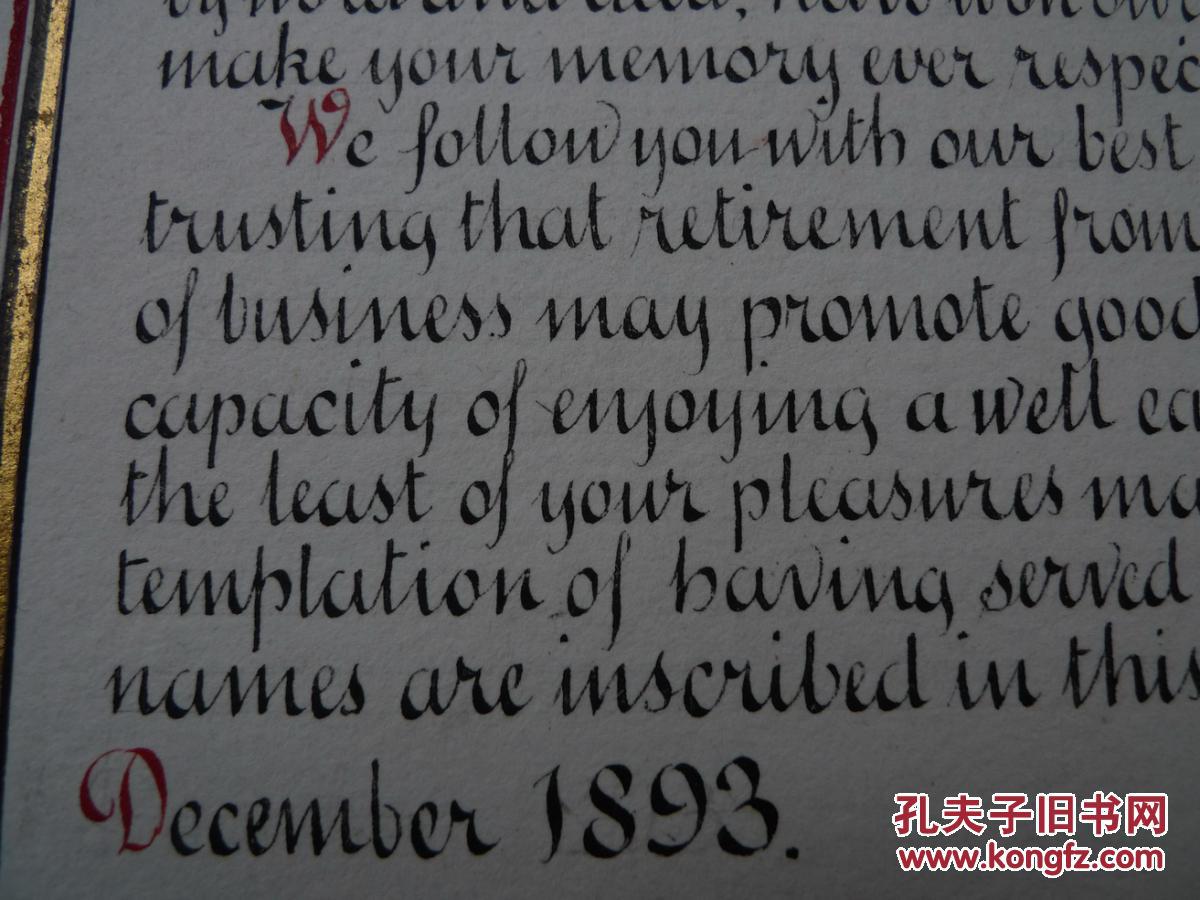 by word and deed, have won our
make your memory ever respec
We follow you with our best
trusting that retirement from
of business may promote good
capacity of enjoying a well ea
the least of your pleasures ma
templation of having served
names are inscribed in this
December 1893.
孔夫子旧书网
www.kongfz.com